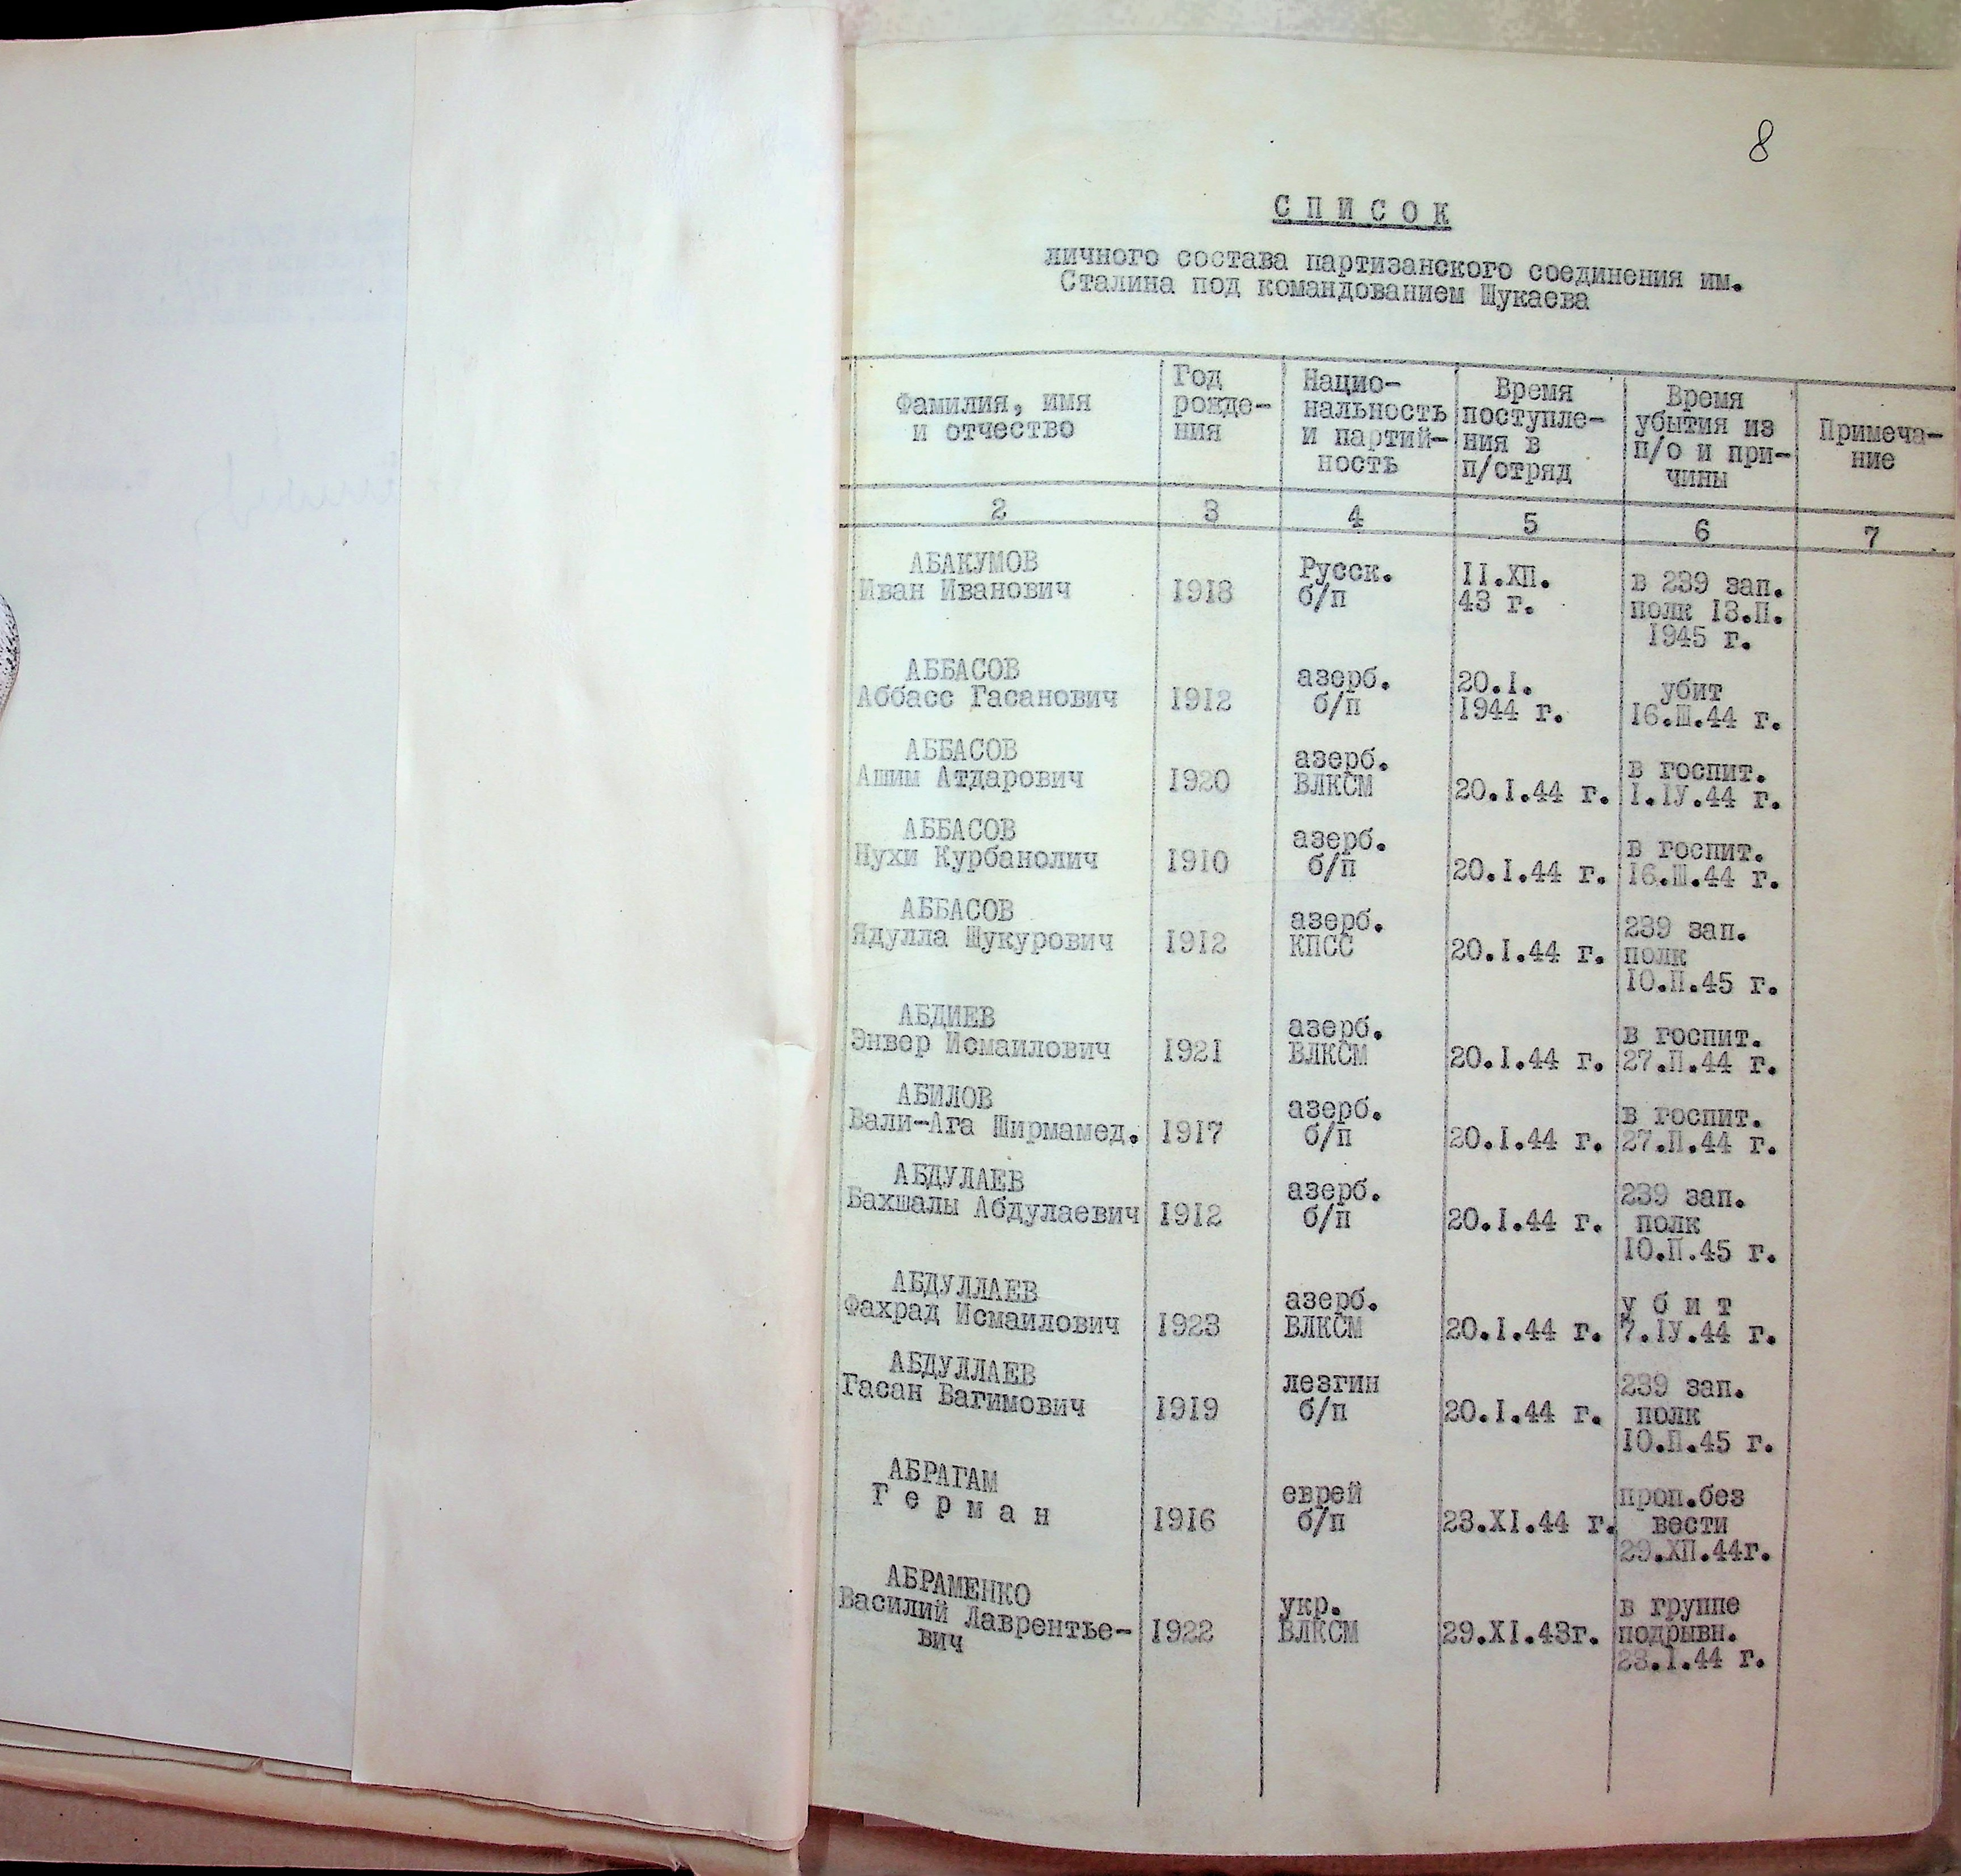 8
С П И С О К
личного состава партизанского соединения им.
Сталина под командованием Шукаева
Фамилия, имя
и отчество
Год
рожде-
ния
Нацио-
нальность
и партий-
ность
Время
поступле-
ния в
п/отряд
Время
убытия из
п/о и при-
чины
Примеча-
ние
2 3 4 5 6 7
АБАКУМОВ
Иван Иванович
1918
Русск.
б/п
II.XII.
43 г.
в 239 зап.
полк I3.II.
1945 г.
АББАСОВ
Аббасс Гасанович
1912
азерб.
б/п
20.I.
1944 г.
убит
16.III.44 г.
АББАСОВ
Ашим Атдарович
1920
азерб.
ВЛКСМ
20.I.44 г.
в госпит.
I.IУ.44 г.
АББАСОВ
Нухи Курбанолич
1910
азерб.
б/п
20.I.44 г.
в госпит.
16.III.44 г.
АББАСОВ
Ядулла Шукурович
1912
азерб.
КПСС
20.I.44 г.
239 зап.
полк
10.II.45 г.
АБДИЕВ
Энвер Исмаилович
1921
азерб.
ВЛКСМ
20.I.44 г.
в госпит.
27.II.44 г.
АБИЛОВ
Вали-Ага Ширмамед.
1917
азерб.
б/п
20.I.44 г.
в госпит.
27.II.44 г.
АБДУЛАЕВ
Бахшалы Абдулаевич
1912
азерб.
б/п
20.I.44 г.
239 зап.
полк
10.II.45 г.
АБДУЛЛАЕВ
Фахрад Исмаилович
1923
азерб.
ВЛКСМ
20.I.44 г.
у б и т
7.IУ.44 г.
АБДУЛЛАЕВ
Гасан Вагимович
1919
лезгин
б/п
20.I.44 г.
239 зап.
полк
10.II.45 г.
АБРАГАМ
Г е р м а н
1916
еврей
б/п
23.XI.44 г.
проп.без
вести
29.XII.44г.
АБРАМЕНКО
Василий Лаврентье-
вич
1922
укр.
ВЛКСМ
29.XI.43г.
в группе
подрывн.
23.I.44 г.